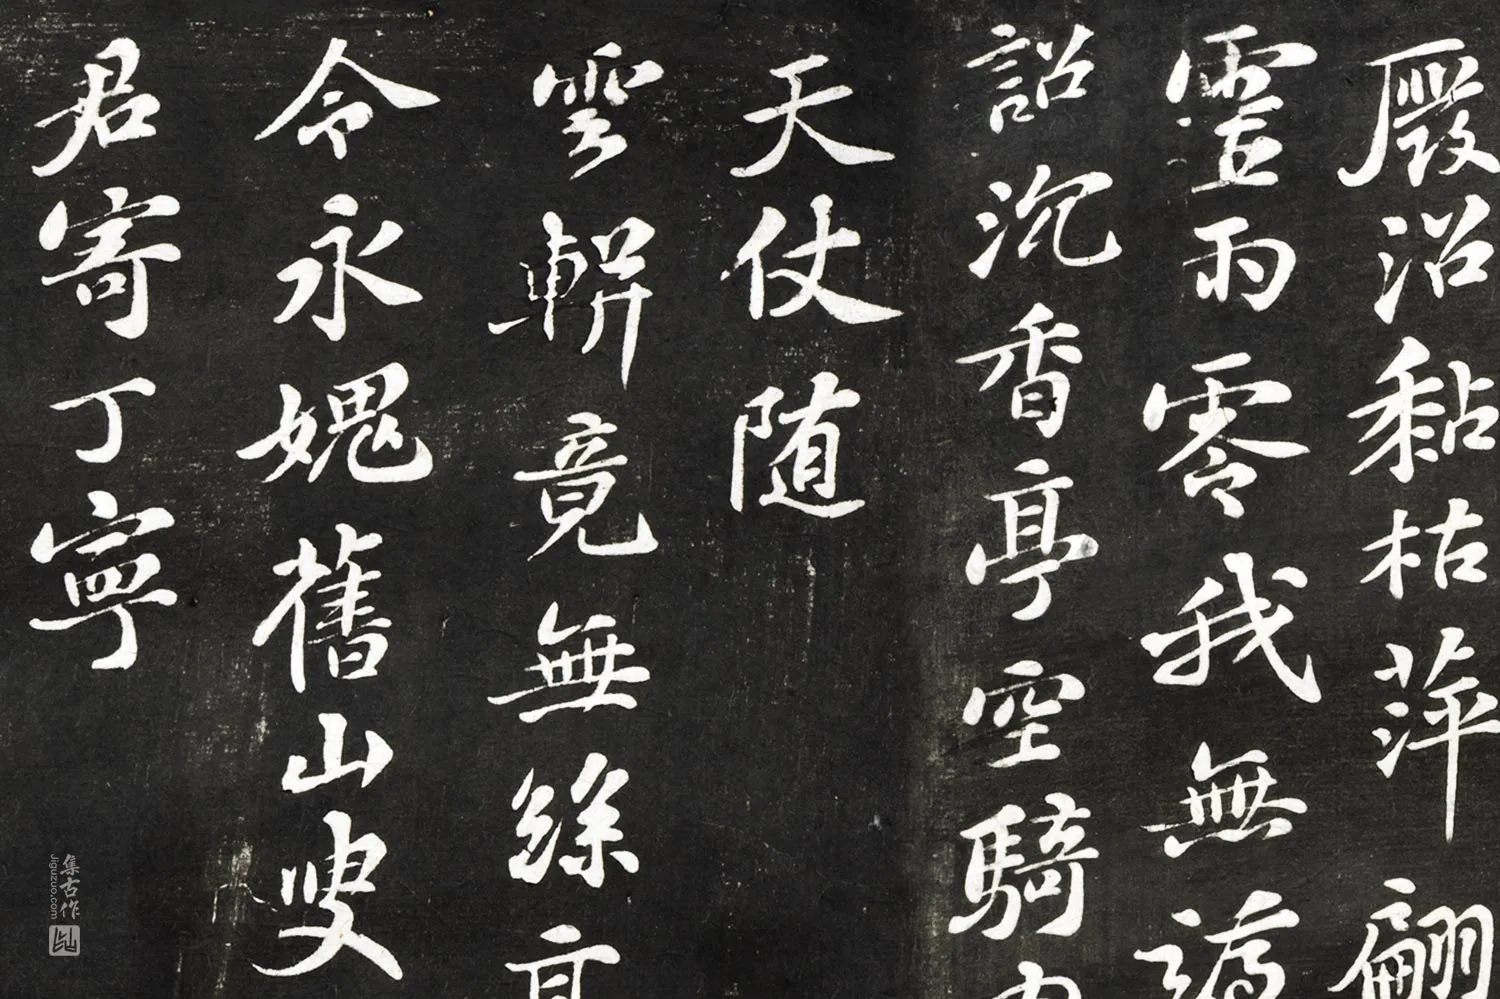 厰沿黏枯萍翩
靈雨零我無
詔沉香亭空騎
天仗随
雲軿竟無絲
令永媿舊山叟
君寄丁寧
集古作
Jiguzuo.com